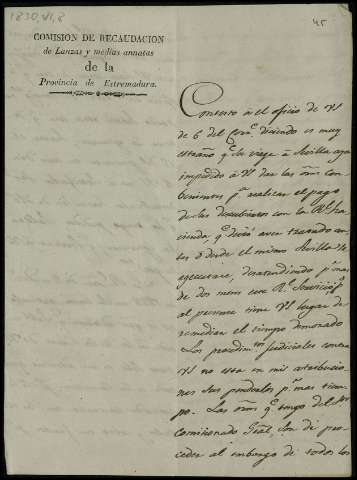 1830, VI, 8
45
COMISION DE RECAUDACION
de Lanzas y medias annatas
de la
Provincia de Estremadura.
Contexto à el oficio de VS
de 6 del Corr.te diciendo es muy
estraño q.e la viage à Sevilla aya
impedido à VS dar las orn.s con-
benientes p.a realizar el pago
de los descubiertos con la R.l ha-
cienda, q.e devió aver tratado an-
tes ò desde el mismo Sevilla
egecutarse, desatendiendo p.r mas
de dos meses este R.l Servicio, p.r
al presente tiene VS lugar de
remediar el tiempo demorado
Los procedim.tos judiciales contra
VS no esta en mis atribucio
nes sus penderlos p.r mas tiem-
po. Las orn.s q.e tengo del
Comisionado Gral, son de pro-
ceder al embargo de todos los